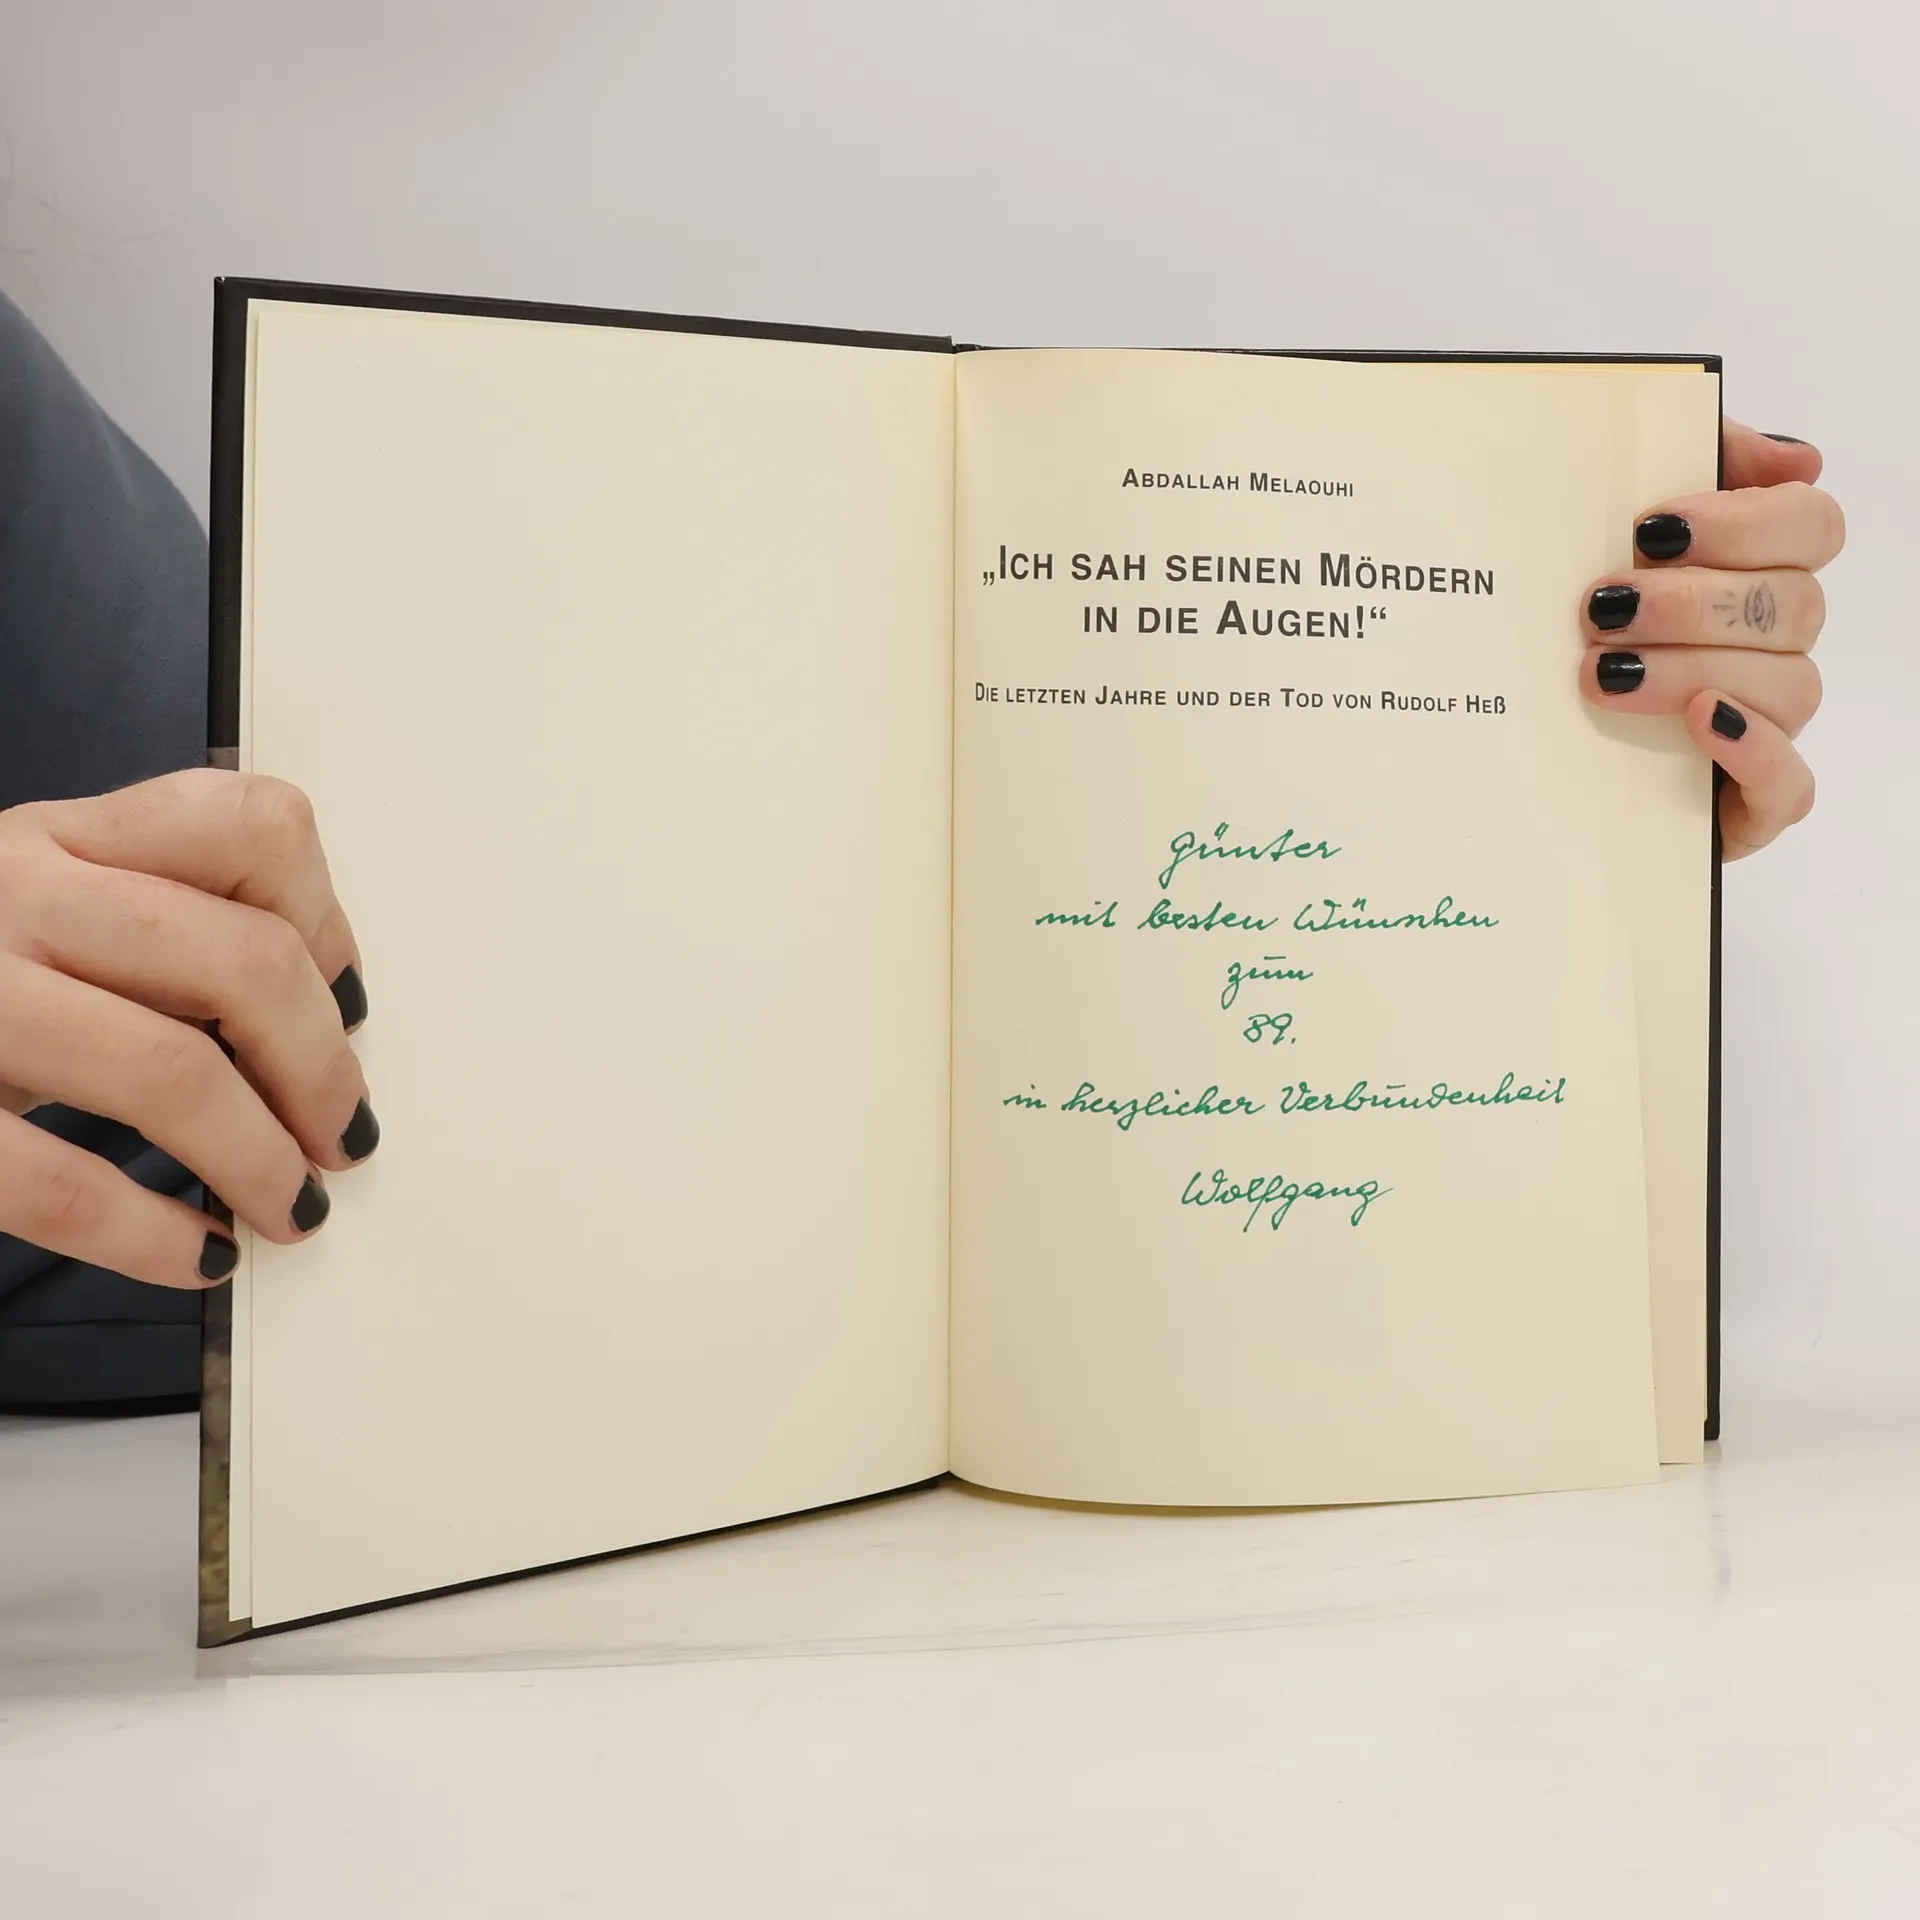 Abdallah Melaouhi
„Ich sah seinen Mördern
in die Augen!“
Die letzten Jahre und der Tod von Rudolf Heß
Günter
mit besten Wünschen
zum
89.
in herzlicher Verbundenheit
Wolfgang